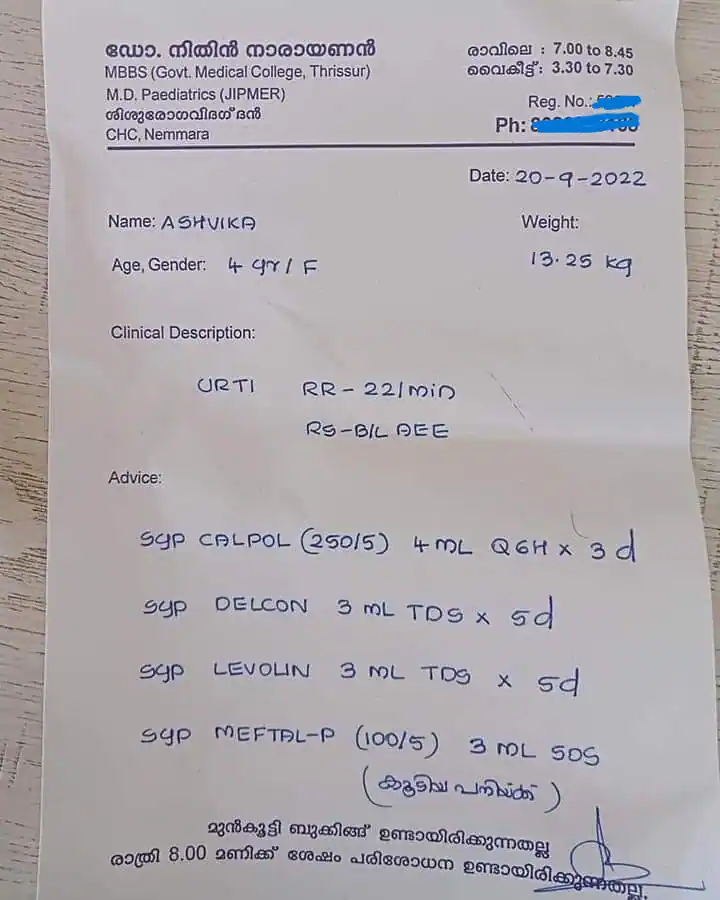 ഡോ. നിതിൻ നാരായണൻ
MBBS (Govt. Medical College, Thrissur)
M.D. Paediatrics (JIPMER)
ശിശുരോഗവിദഗ്ദൻ
CHC, Nemmara
രാവിലെ : 7.00 to 8.45
വൈകീട്ട് : 3.30 to 7.30
Reg. No.:
Ph:
Date: 20-9-2022
Name: ASHVIKA
Weight:
Age, Gender: 4 yr / F
13.25 kg
Clinical Description:
URTI RR - 22/min
RS - B/L AEE
Advice:
syp CALPOL (250/5) 4 mL Q6H x 3 d
syp DELCON 3 mL TDS x 5d
syp LEVOLIN 3 mL TDS x 5d
syp MEFTAL-P (100/5) 3 mL SOS
(കൂടിയ പനിയ്ക്ക്)
മുൻകൂട്ടി ബുക്കിങ്ങ് ഉണ്ടായിരിക്കുന്നതല്ല
രാത്രി 8.00 മണിക്ക് ശേഷം പരിശോധന ഉണ്ടായിരിക്കുന്നതല്ല.